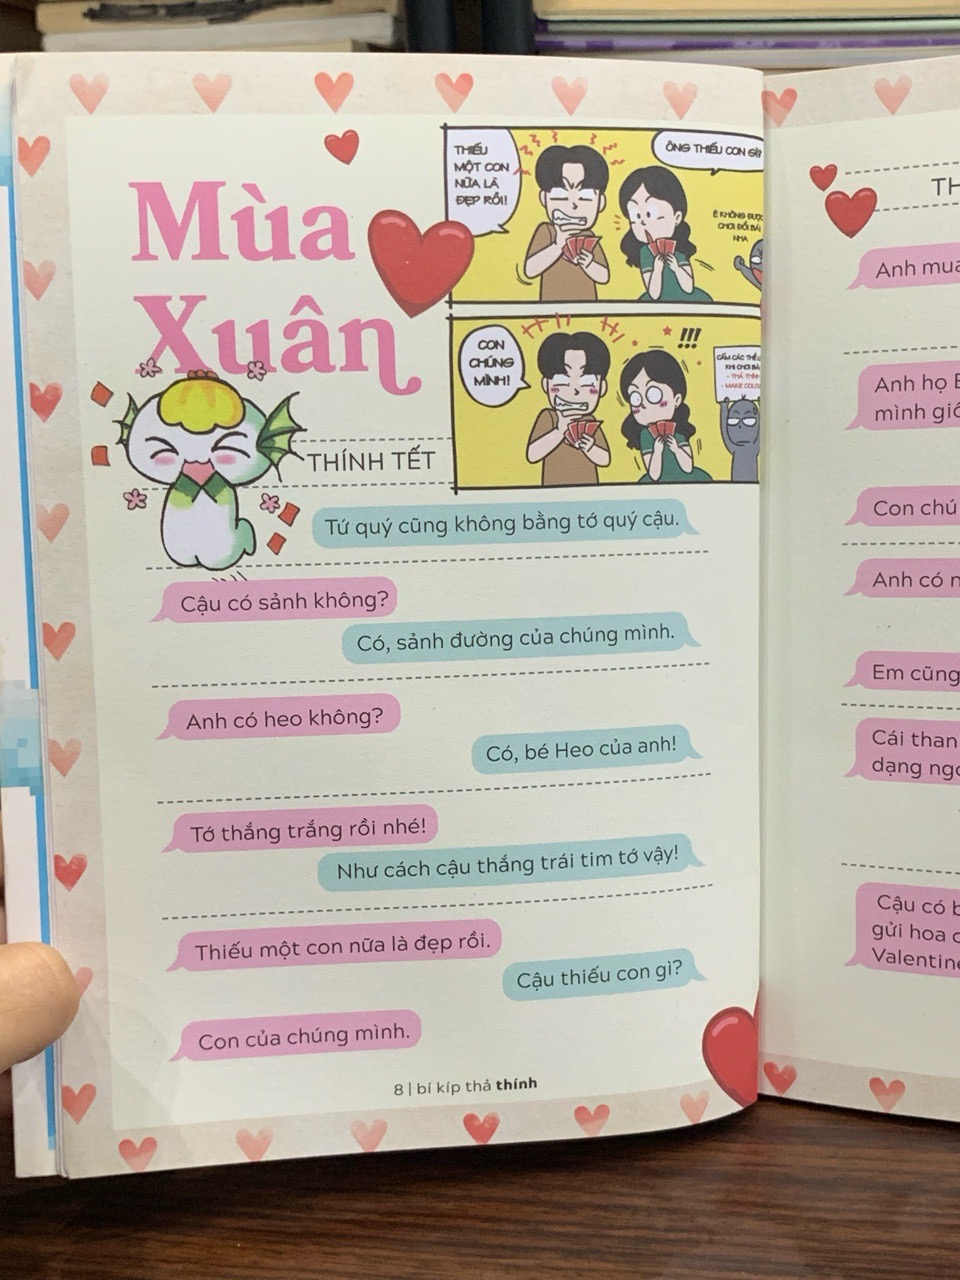 Mùa
Xuân
THIẾU
MỘT CON
NỮA LÀ
ĐẸP RỒI!
ÔNG THIẾU CON GÌ?
Ê KHÔNG ĐƯỢC
CHƠI ĐỔI BÀI
NHA
CON
CHÚNG
MÌNH!
!!!
CẤM CÁC THỂ
KHI CHƠI BÀI
- THẢ THÍNH
- MAKE
THÍNH TẾT
Tứ quý cũng không bằng tớ quý cậu.
Cậu có sảnh không?
Có, sảnh đường của chúng mình.
Anh có heo không?
Có, bé Heo của anh!
Tớ thắng trắng rồi nhé!
Như cách cậu thắng trái tim tớ vậy!
Thiếu một con nữa là đẹp rồi.
Cậu thiếu con gì?
Con của chúng mình.
8 | bí kíp thả thính
TH
Anh mua
Anh họ
mình
Con chú
Anh có
Em cũng
Cái than
dạng
Cậu có
gửi hoa
Valentine